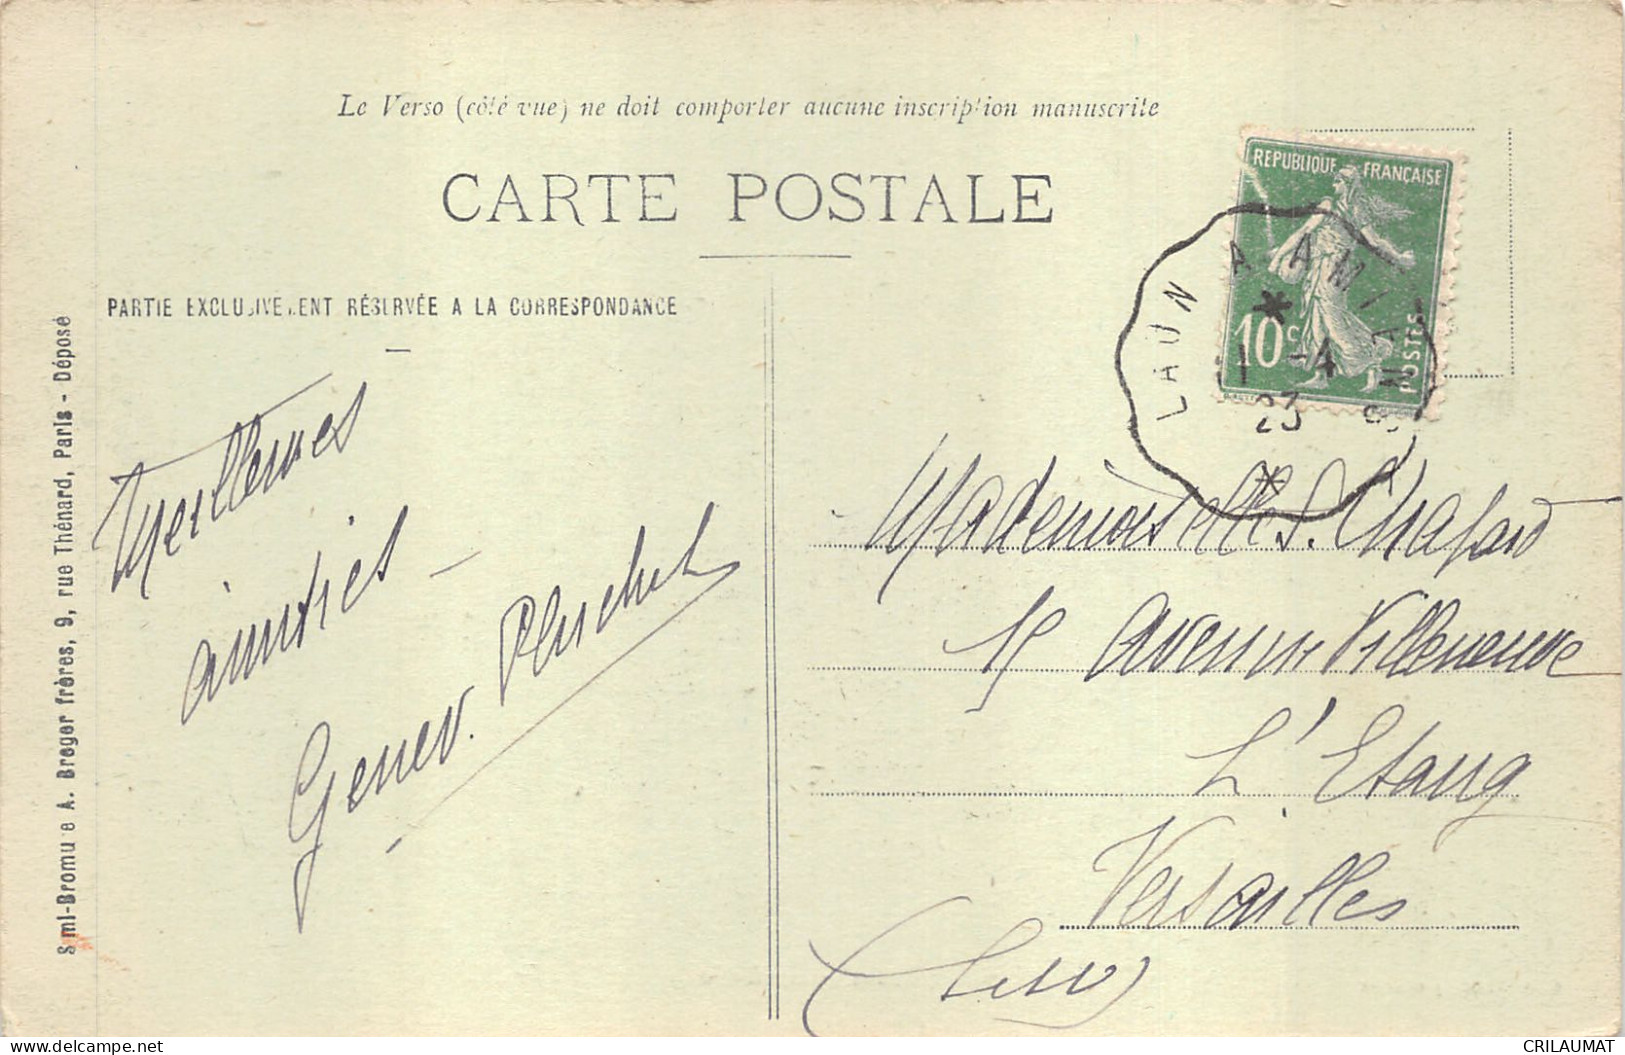 Le Verso (côté vue) ne doit comporter aucune inscription manuscrite
CARTE POSTALE
PARTIE EXCLUSIVEMENT RÉSERVÉE A LA CORRESPONDANCE
REPUBLIQUE FRANÇAISE
10c
POSTES
LAON A AMIENS
1 -4
23
Semi-Bromure A. Breger frères, 9, rue Thénard, Paris - Déposé
Meilleures
amitiés -
Genev.
Mademoiselle S. Chafard
Avenue Villeneuve
L'Etang
Versailles
delcampe.net
CRILAUMAT